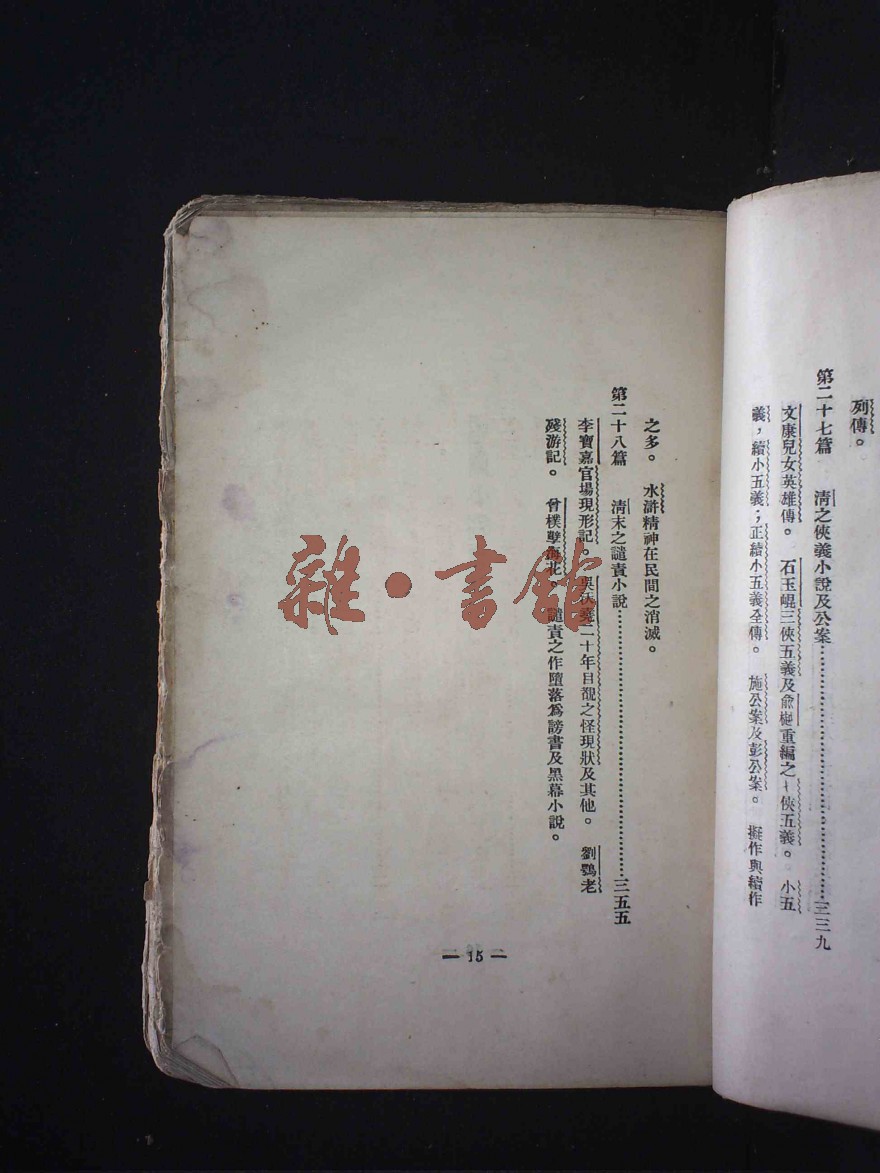 列傳。
第二十七篇 清之俠義小說及公案……三三九
文康兒女英雄傳。 石玉崐三俠五義及俞樾重編之七俠五義。 小五
義,續小五義;正續小五義全傳。 施公案及彭公案。 擬作與續作
之多。 水滸精神在民間之消滅。
第二十八篇 清末之譴責小說……三五五
李寶嘉官場現形記。 吳沃堯二十年目覩之怪現狀及其他。 劉鶚老
殘游記。 曾樸孽海花。 譴責之作墮落爲謗書及黑幕小說。
— 15 —
雜·書館